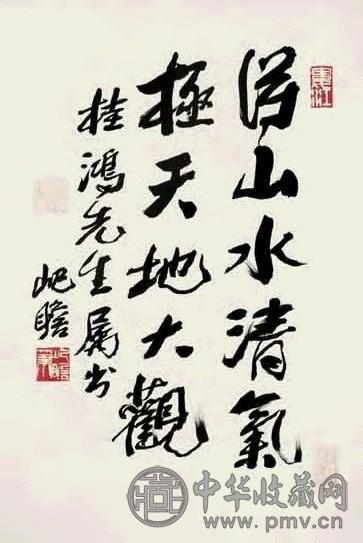 得山水清氣
極天地大觀
桂鴻先生属书
屺瞻
中华收藏网
www.pmv.cn